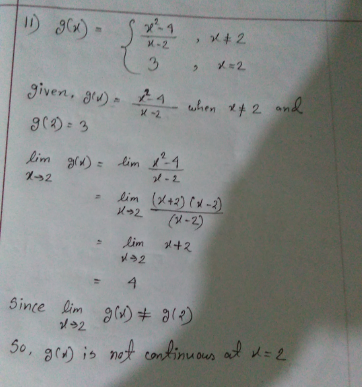 11) g(x) = { (x²-4)/(x-2) , x ≠ 2
3 , x = 2
given, g(x) = (x²-4)/(x-2) when x ≠ 2 and
g(2) = 3
lim x→2 g(x) = lim (x²-4)/(x-2)
= lim x→2 (x+2)(x-2)/(x-2)
= lim x→2 x+2
= 4
Since lim x→2 g(x) ≠ g(2)
So, g(x) is not continuous at x = 2